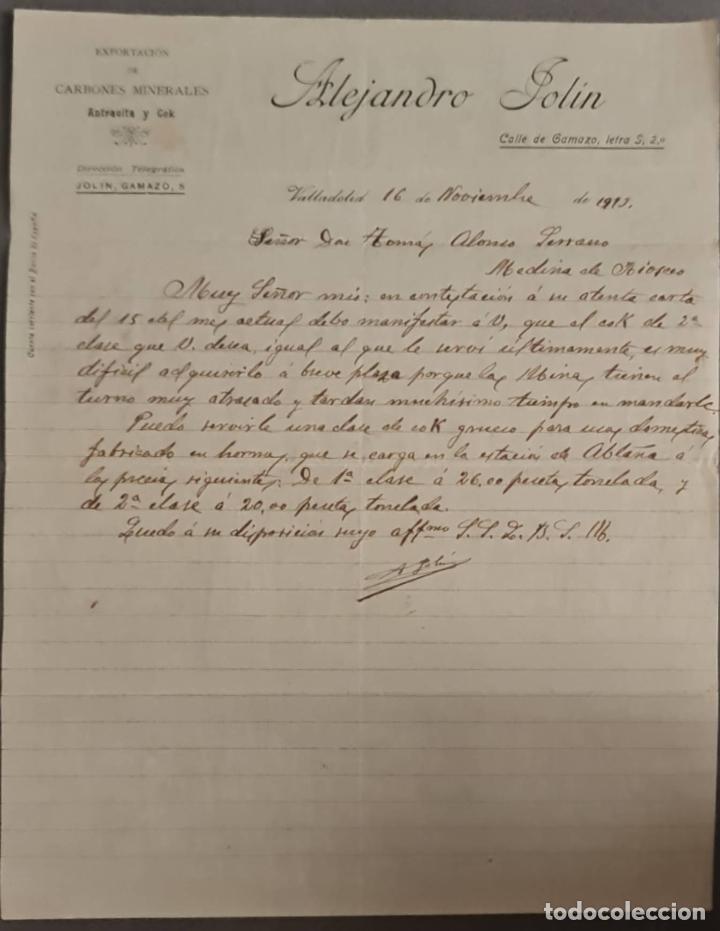 EXPORTACIÓN
DE
CARBONES MINERALES
Antracita y Cok
Dirección Telegráfica
JOLÍN, GAMAZO, S
Alejandro Jolín
Calle de Gamazo, letra S, 2.º
Cuenta corriente con el Banco de España
Valladolid 16 de Noviembre de 1913.
Señor Don Tomás Alonso Serrano
Medina de Rioseco
Muy Señor mio: en contestación á su atenta carta
del 15 del mes actual debo manifestar á V, que el coK de 2ª
clase que V. desea, igual al que le serví ultimamente, es muy
dificil adquirirlo á breve plazo porque las Minas tienen el
turno muy atrasado y tardan muchísimo tiempo en mandarle.
Puedo servirle una clase de coK grueso para usos domesticos,
fabricado en hornos, que se carga en la estación de Ablaña á
los precios siguientes: De 1ª clase á 26.00 pesetas tonelada, y
de 2ª clase á 20.00 pesetas tonelada.
Quedo á su disposición suyo affmo S. S. Q. B. S. M.
A Jolín
todocoleccion
todocoleccion.net